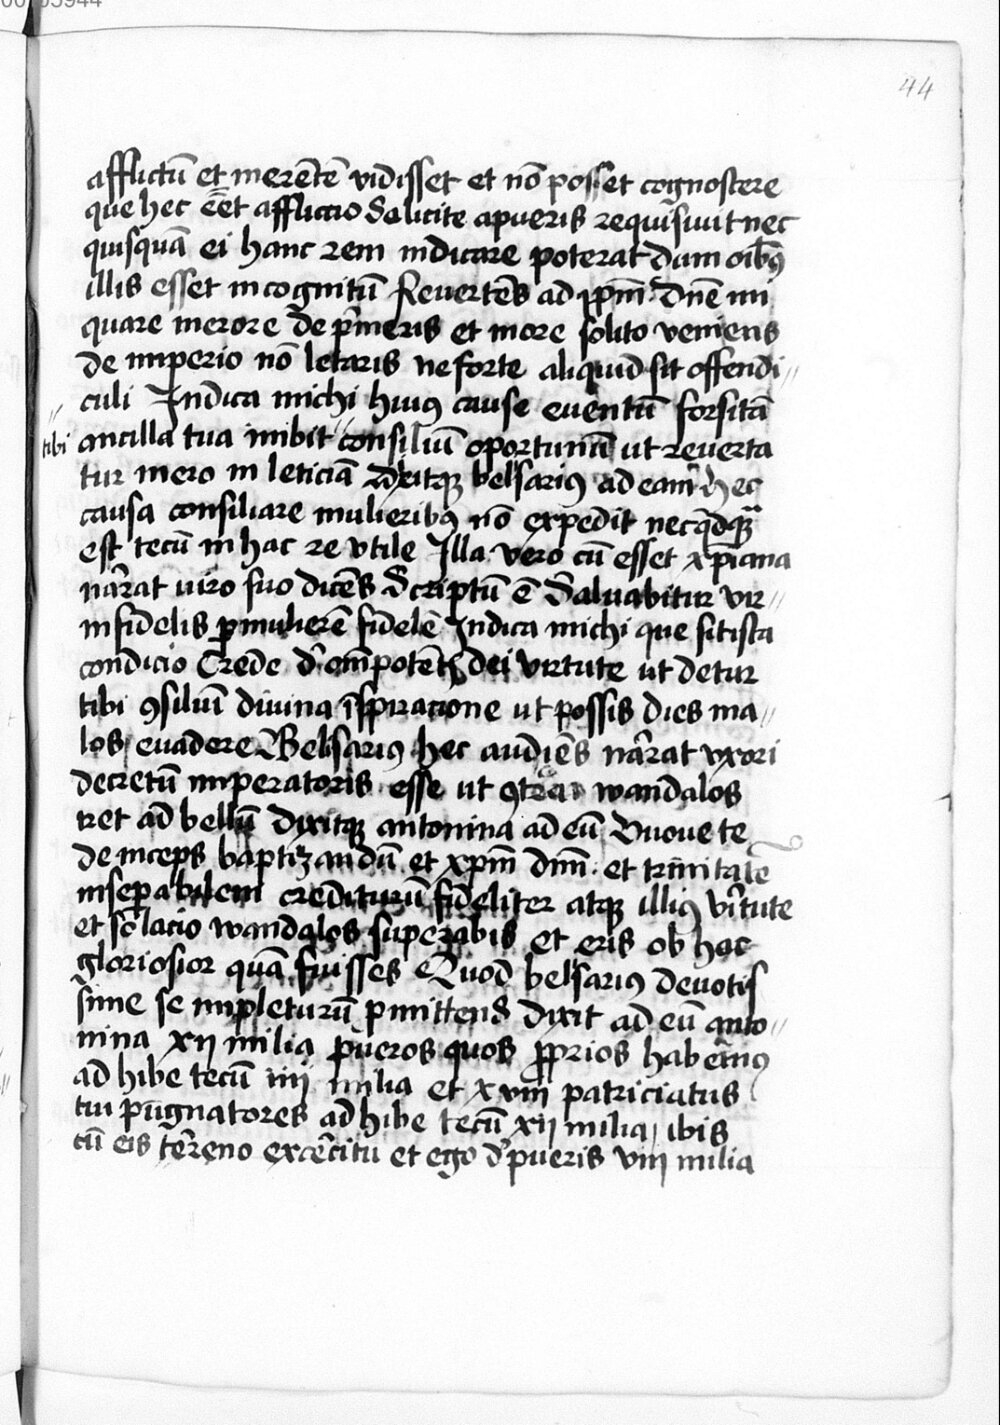 44
afflictū et merētē vidisset et nō posset cognoscere
que hec eēt afflictio Solicite apueris requisiuit nec
quisquā ei hanc rem indicare poterat dum oībꝰ
illis esset incognitū Reuertēs ad ipm̄ Dn̄e mi
quare merore de p̄meris et more solito veniens
de imperio nō letaris ne forte aliquid sit offendi〃
culi Indica michi huiꝰ cause euentū forsitā
tibi
ancilla tua inibit 〃 consiliū oportunū ut reuerta
tur meror in leticiā dixitqꝫ belsariꝰ ad eam hec
causa consiliare mulieribꝰ nō expedit nec qͥdqͣ
est tecū in hac re vtile Illa vero cū esset xp̄iana
nārrat uiro suo dicēs Scriptū ē Saluabitur vir〃
infidelis ꝑ mulierē fidelē Indica michi que sit ista
condicio Crede d̓ om̄potētis dei virtute ut detur
tibi ꝯsiliū diuina īspiracione ut possis dies ma〃
los euadere Belsariꝰ hec audiēs nārrat vxori
decretū imperatoris esse ut ꝯtra wandalos
iret ad bellū dixitqꝫ antonina ad eū Vuoue te
deinceps baptizandū et xp̄m dn̄m et trinitatē
insepabilem crediturū fideliter atqꝫ illiꝰ vīrtute
et solacio wandalos superabis et eris ob hac
gloriosior quā fuisses Quod belsariꝰ deuotis
sime se impleturū ꝓmittens dixit ad eū anto〃
nina xij milia pueros quos ꝓprios habemꝰ
adhibe tecū iiij milia et xviij patriciatus
tui pūgnatores adhibe tecū xij milia ibis
cū eis tērreno excērcitu et ego d̓ pueris viij milia